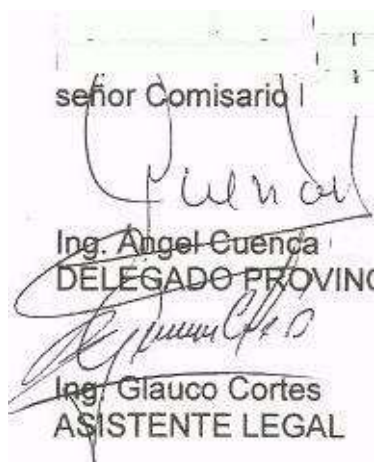 señor Comisario
Cuenca
Ing. Angel Cuenca
DELEGADO PROVINC
Ing. Glauco Cortes
ASISTENTE LEGAL